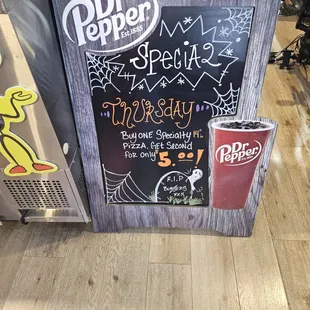 Dr Pepper
Est. 1885
Special
Thursday
Buy one Specialty 14"
Pizza, Get Second
for only 5.00!
Dr Pepper
R.I.P.